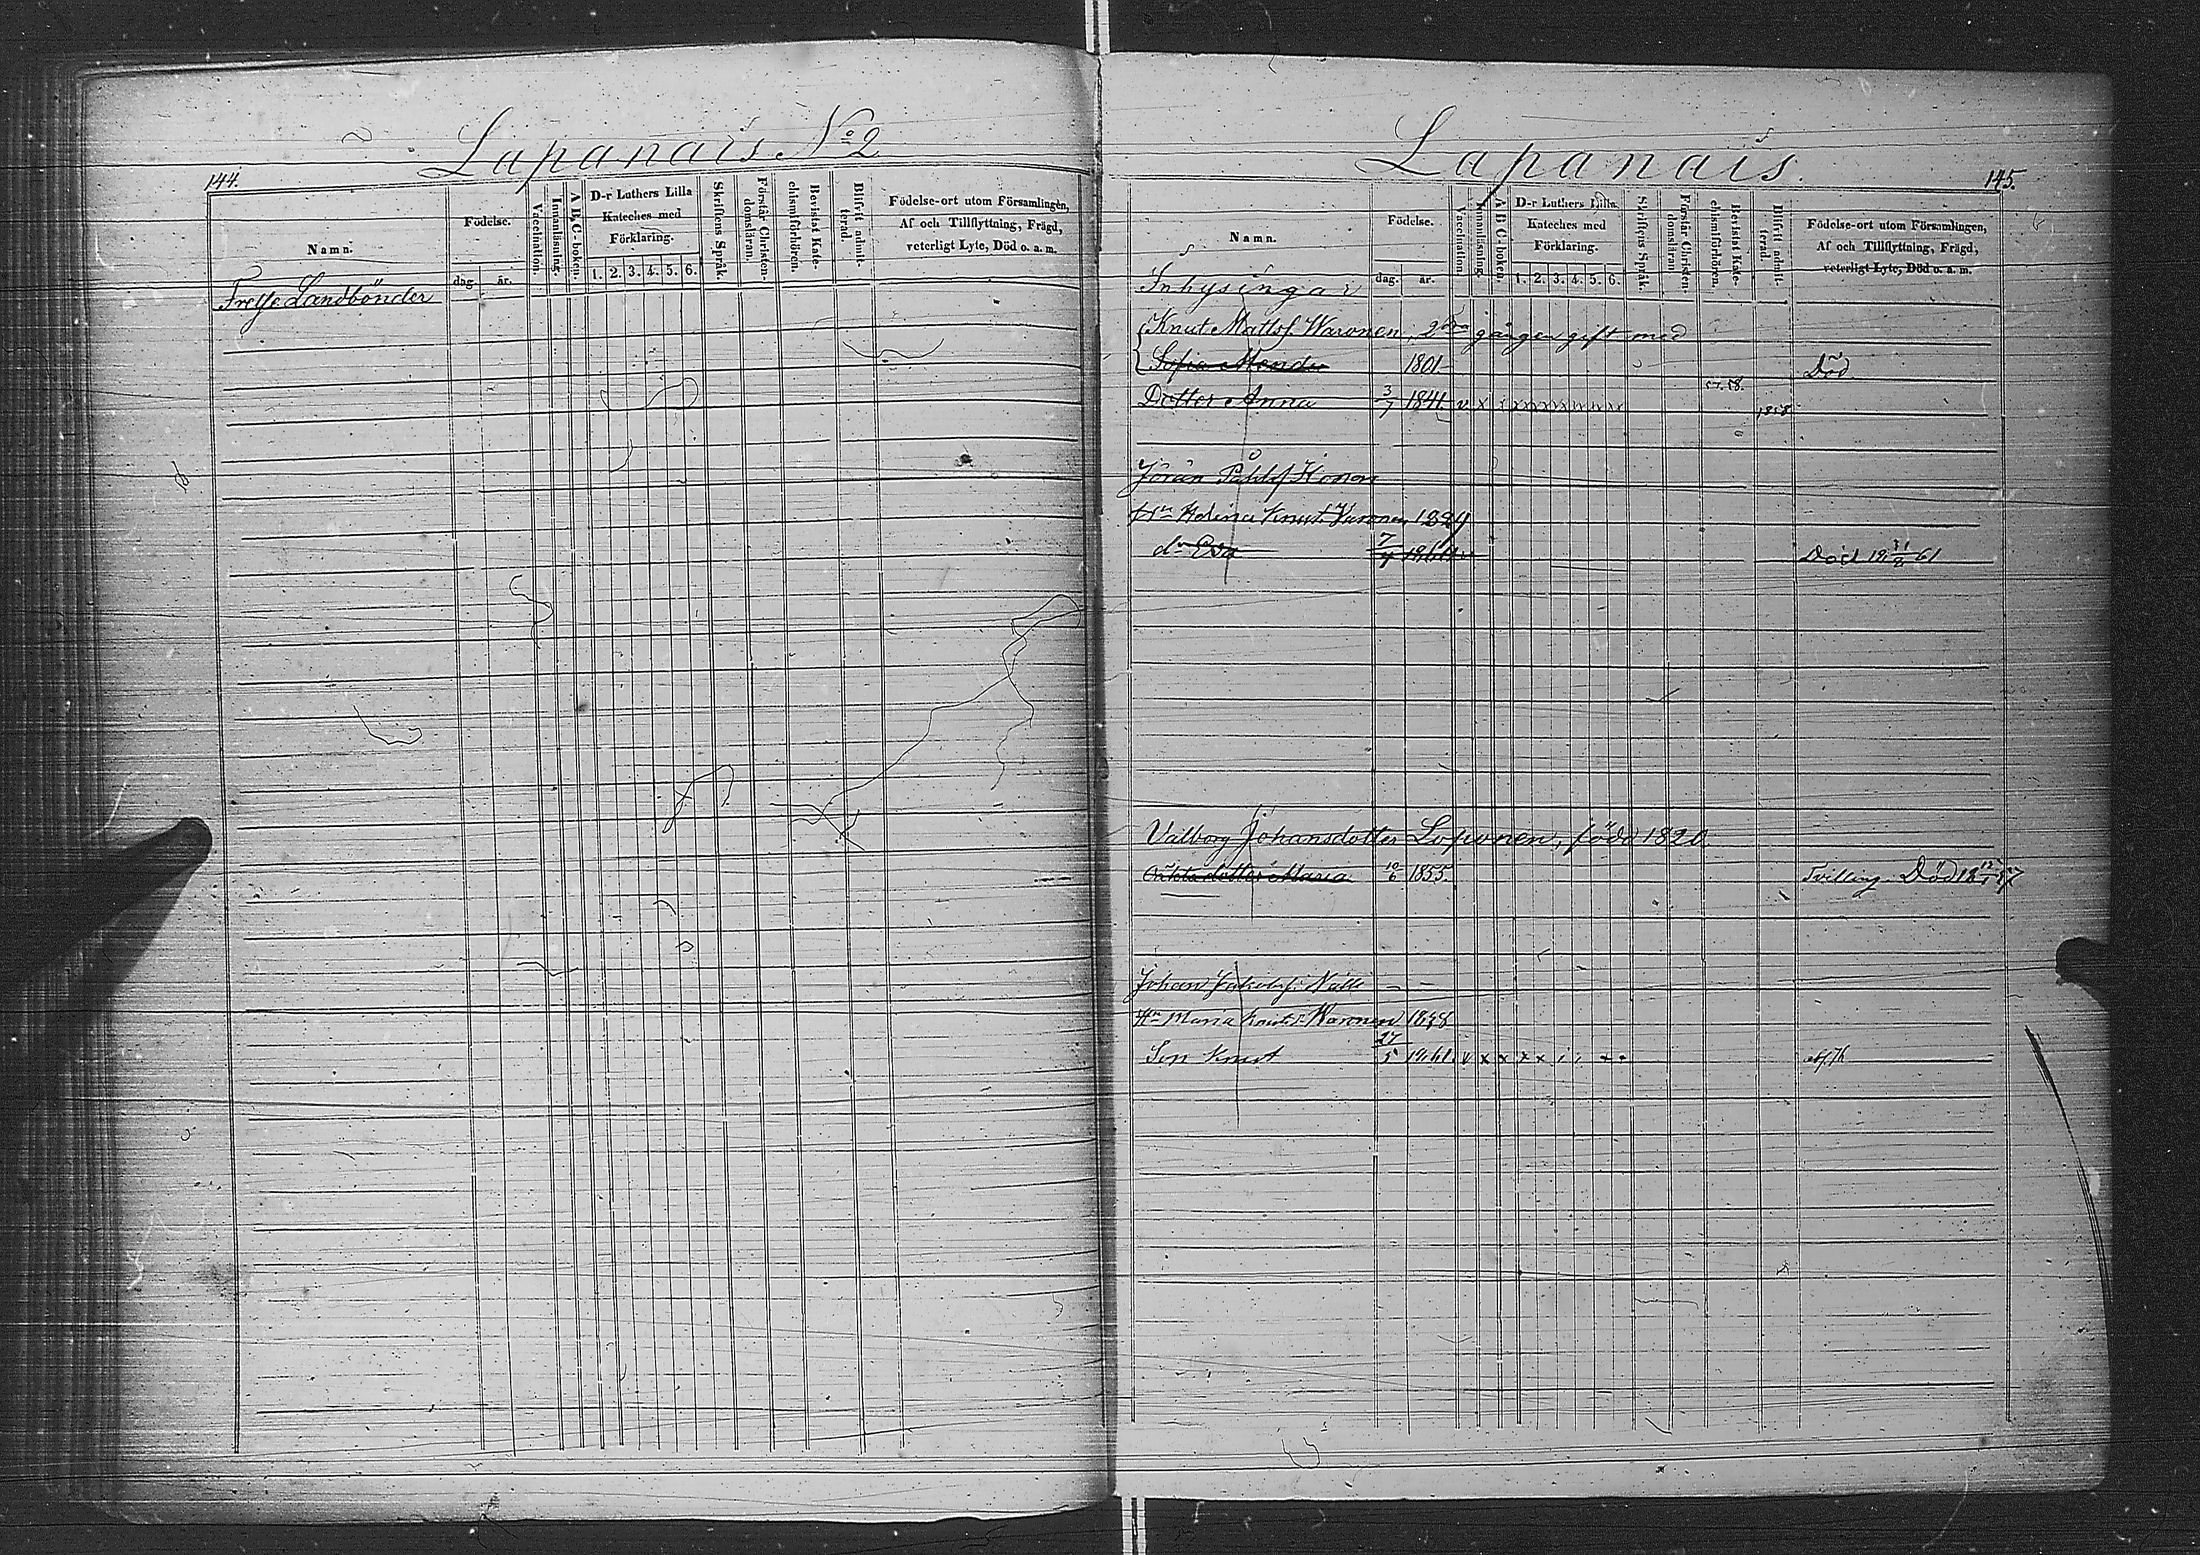 Lapanais No 2
144.
Namn.
Födelse.
dag. år.
Vaccination.
Innanläsning.
A B C-boken.
D-r Luthers Lilla
Kateches med
Förklaring.
1. 2. 3. 4. 5. 6.
Skriftens Språk.
Förstår Christen-
domsläran.
Bevistat Kate-
chismiförhören.
Blifvit admit-
terad.
Födelse-ort utom Församlingen,
Af och Tillflyttning, Frägd,
veterligt Lyte, Död o. a. m.
Frelse Landbönder
Lapanais.
145.
Namn.
Födelse.
dag. år.
Vaccination.
Innanläsning.
A B C-boken.
D-r Luthers Lilla
Kateches med
Förklaring.
1. 2. 3. 4. 5. 6.
Skriftens Språk.
Förstår Christen-
domsläran
Bevistat Kate-
chismiförhören.
Blifvit admit-
terad.
Födelse-ort utom Församlingen,
Af och Tillflyttning, Frägd,
veterligt Lyte, Död o. a. m.
Inhysingar
Knut Matts. Waronen, 2dra gången gift med
Sofia 1801 Död
Dotter Anna 3/7 1841. v x 57. 58. 1858
Jöran Påhls. Kononen
Knut. Varonen 1829
dr Eva 7/4 1861 Död 18 31/8 61
Valborg Johansdotter Loponen, född 1820.
dotter Maria 10/6 1855. Tvilling. Död 18 57
Johan Jakobs. - -
Maria Knuts. Waronen 1838
Son Knut 27/5 1861. v x x x x